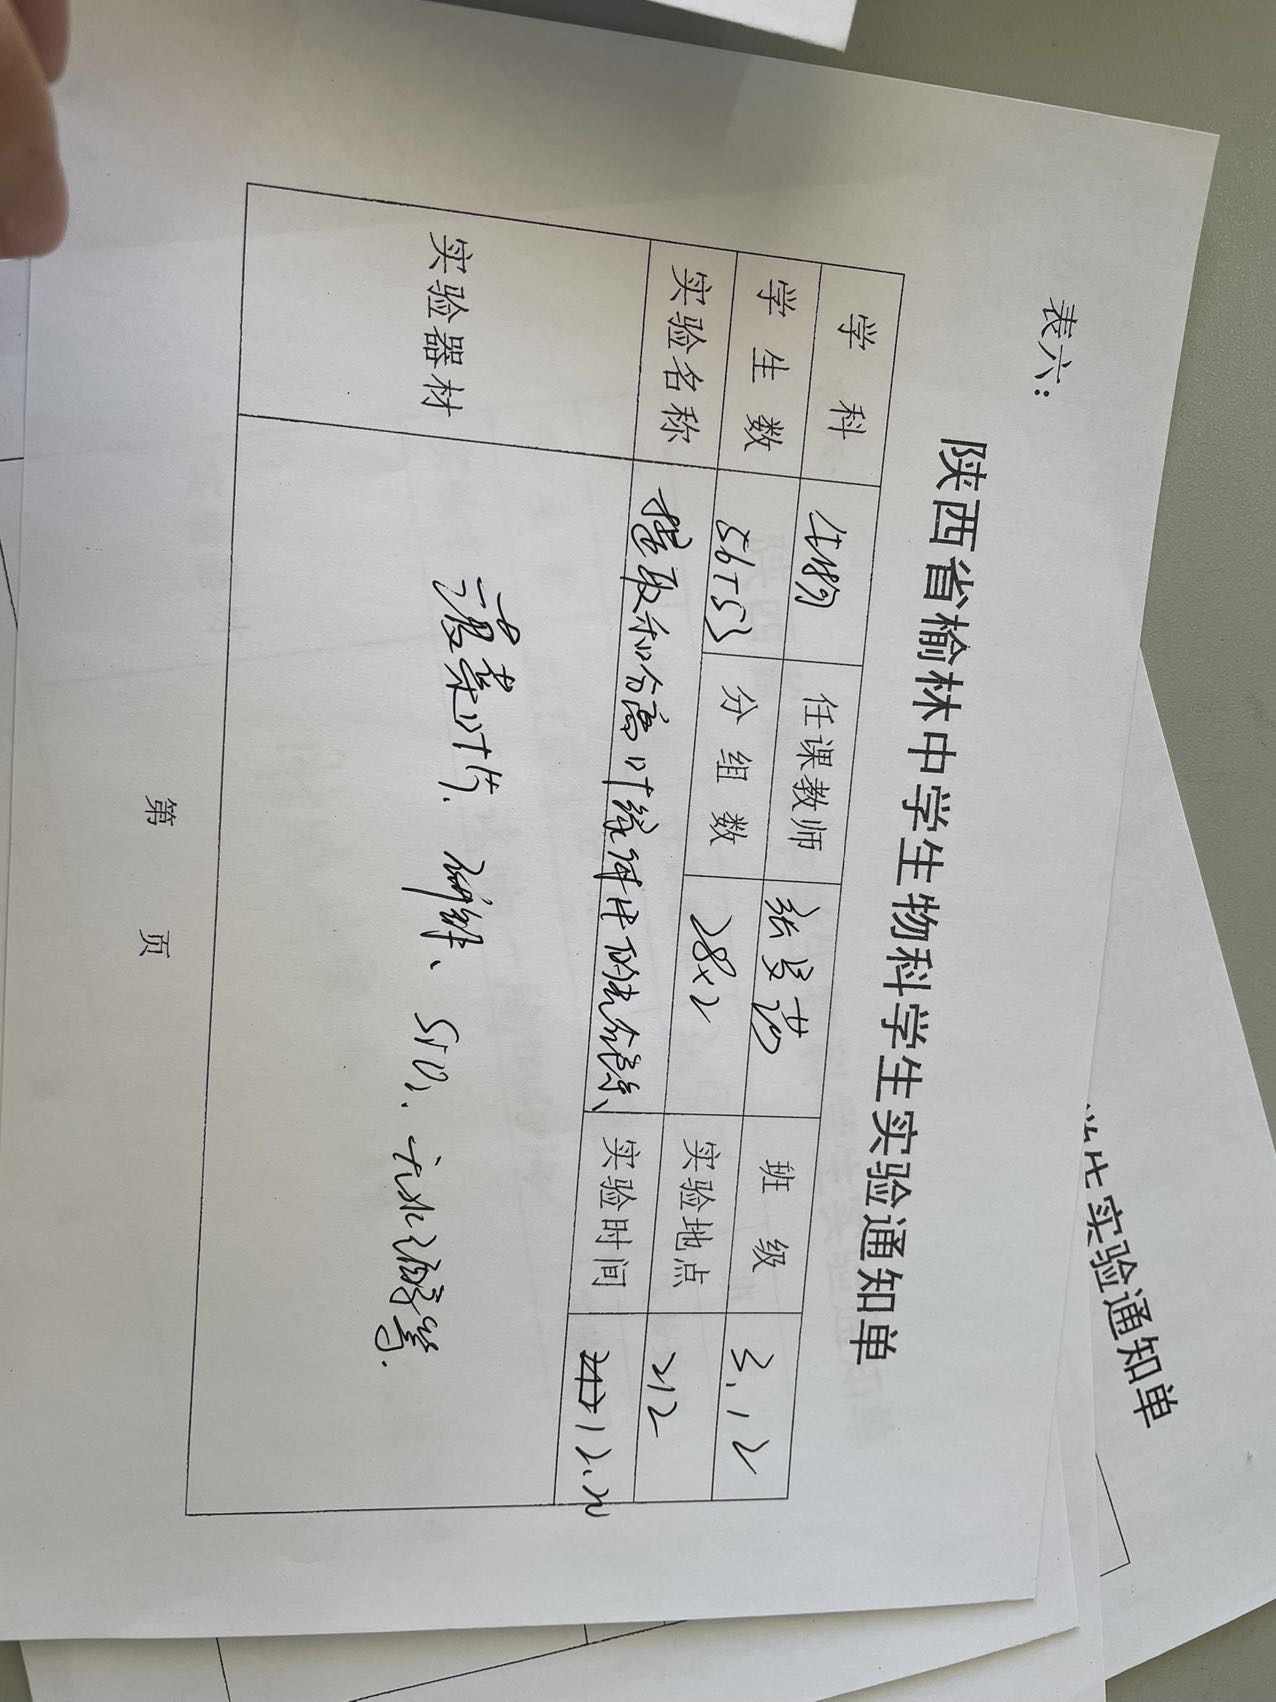 表六：
陕西省榆林中学生物科学生实验通知单
学 科 生物 任课教师 张 班 级 3.12
学 生 数 56+53 分 组 数 28×2 实验地点 212
实验名称 提取和分离叶绿体中的色素 实验时间 12.
实验器材 菠菜叶片、研钵、SiO2、无水乙醇等.
第 页
实验通知单